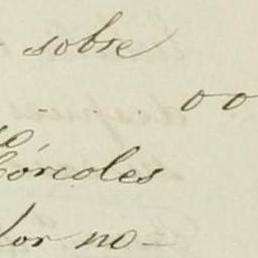 sobre
oo
Córcoles
dor no-